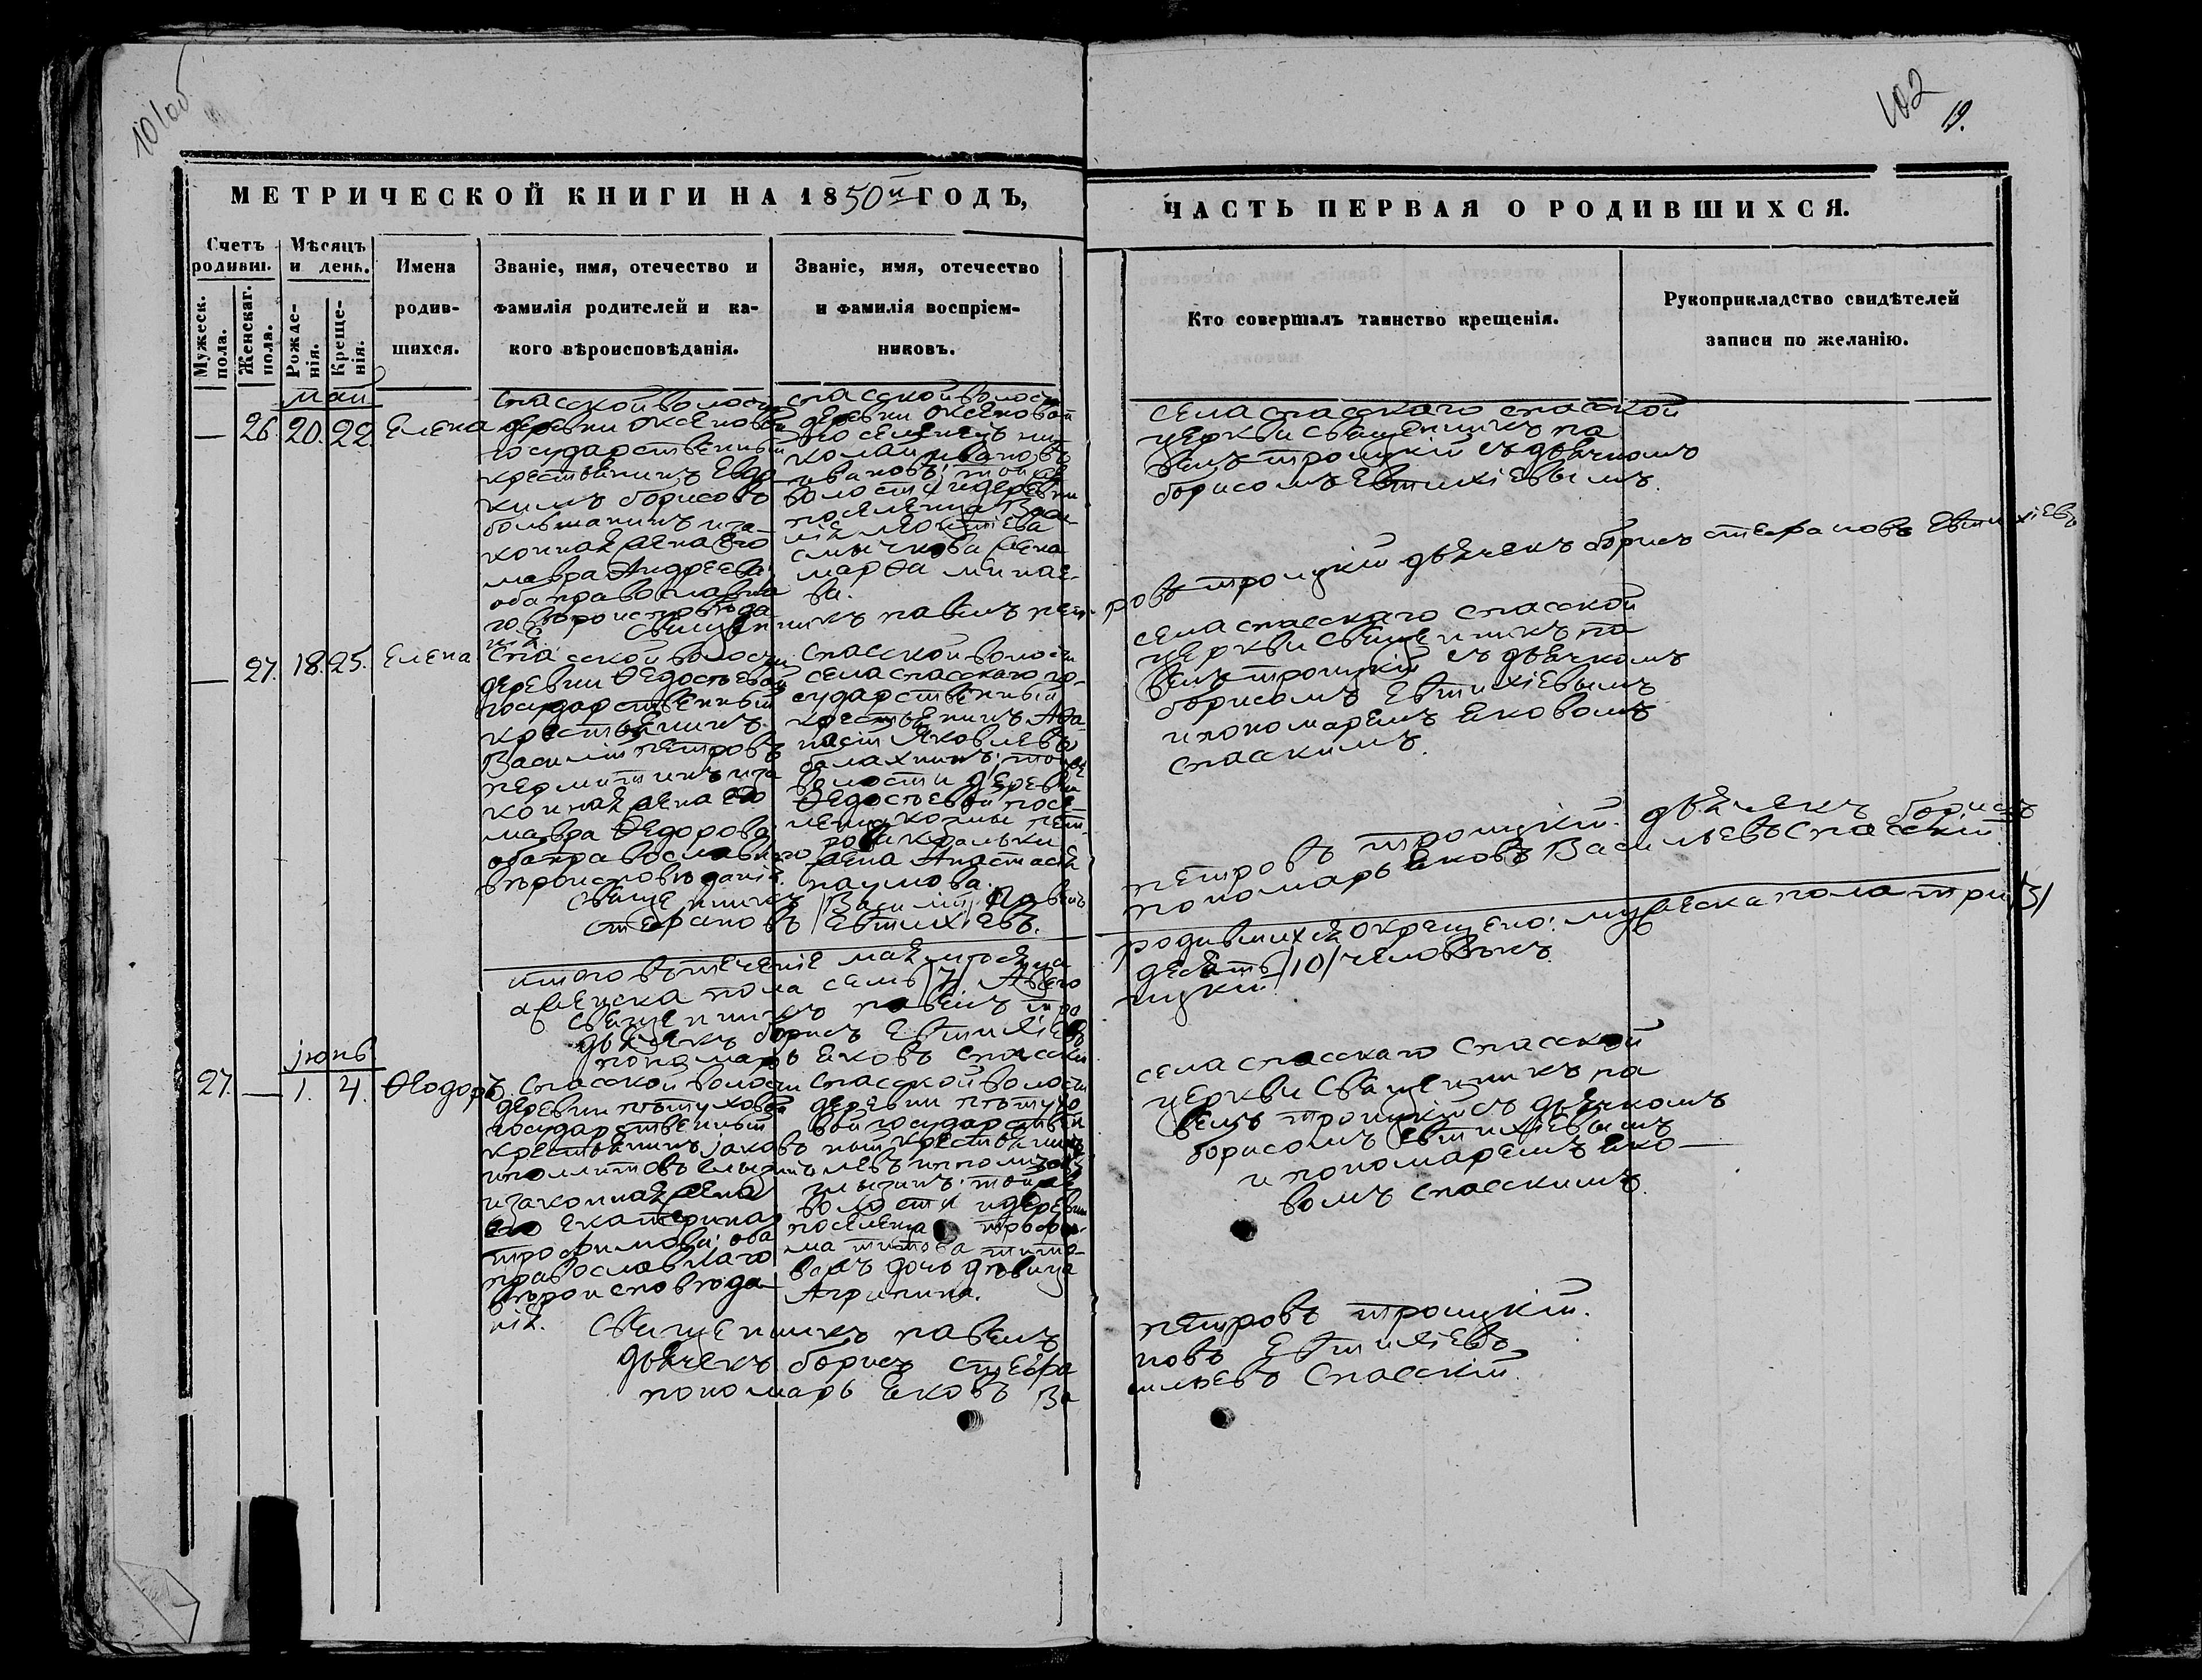 101об
102
19.
МЕТРИЧЕСКОЙ КНИГИ НА 1850й ГОДЪ,
ЧАСТЬ ПЕРВАЯ О РОДИВШИХСЯ.
Счетъ родивш.
Мужеск. пола.
Женскаг. пола.
Мѣсяцъ и день.
Рожде-
нія.
Креще-
нія.
Имена
родив-
шихся.
Званіе, имя, отечество и
фамилія родителей и ка-
кого вѣроисповѣданія.
Званіе, имя, отечество
и фамилія воспріем-
никовъ.
Кто совершалъ таинство крещенія.
Рукоприкладство свидѣтелей
записи по желанію.
маи
— 26. 20. 22. Елена
спасской волости
деревни Оксеновой
государственный
крестьянинъ Евдо
кимъ борисовъ
большанинъ и за-
конная жена его
мавра Андреева
оба православна
го вѣроисповѣда
нія.
спасской волости
деревни Оксеновой
поселенецъ ни-
колаи ивановъ
ивановъ: той же
волости и деревни
поселенца
жена
марѳа минае-
ва.
села спасскаго спасской
церкви священникъ па
велъ троицкій съ дьячкомъ
борисомъ Евтихіевымъ.
священникъ павелъ пет-
ровъ троицкій дьячекъ борисъ стефановъ Евтихіевъ
— 27. 18. 25. Елена
спасской волости
деревни Ѳедосѣевой
государственный
крестьянинъ
Василій петровъ
пермитинъ и за
конная жена его
мавра Ѳедорова
оба православнаго
вѣроисповѣданія.
спасской волости
села спасскаго го-
сударственный
крестьянинъ Аѳа-
насій Яковлевъ
балахнинъ; той же
волости деревни
Ѳедосѣевой посе-
ленца козмы пет-
рова
жена Анастасія
наумова.
села спасскаго спасской
церкви священникъ па
велъ троицкій съ дьячкомъ
борисомъ Евтихіевымъ
и пономаремъ Яковомъ
спасскимъ.
священникъ павелъ
петровъ троицкій. дьячекъ борисъ
стефановъ Евтихіевъ.
пономарь Яковъ Васильевъ спасскій
итого въ теченіе мая мѣсяца
родившихся окрещено: мужеска пола три /3/
а женска пола семь /7/. А всего
десять /10/ человѣкъ.
священникъ павелъ тро
ицкій
дьячекъ борисъ Евтихіевъ
пономарь Яковъ спасскій
іюнь
27. — 1. 4. Ѳеодоръ
спасской волости
деревни пѣтуховой
государственный
крестьянинъ јаковъ
иполитовъ
и законная жена
его екатерина
трофимова; оба
православнаго
вѣроисповѣда-
нія.
спасской волости
деревни пѣтухо
вой государствен
ный крестьянинъ
той же
волости и деревни
поселенца трофи-
ма титова
дочь дѣвица
Агрипина.
села спасскаго спасской
церкви священникъ па
велъ троицкій съ дьячкомъ
борисомъ Евтихіевымъ
и пономаремъ Яко—
вомъ спасскимъ.
священникъ павелъ
петровъ троицкій.
дьячекъ борисъ стефа
новъ Евтихіевъ
пономарь Яковъ Ва
сильевъ спасскій.